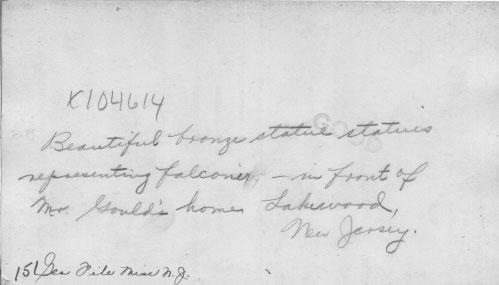 K104614
Beautiful bronze statue statues
representing falconer, - in front of
Mr. Gould's home Lakewood,
New Jersey.
151 Geo File Misc N.J.